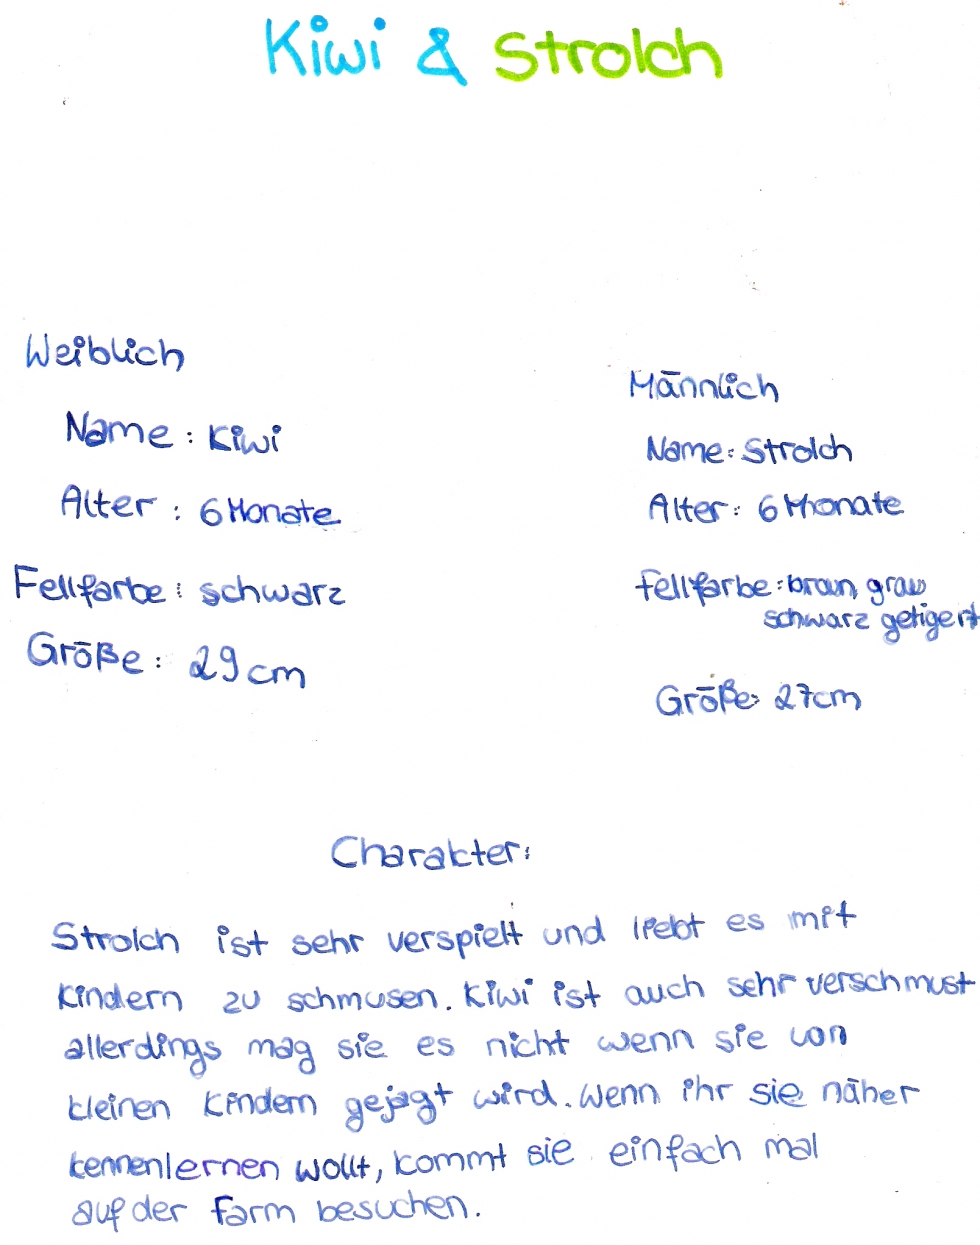 Kiwi & Strolch
Weiblich
Name : Kiwi
Alter : 6 Monate
Fellfarbe : schwarz
Größe : 29 cm
Männlich
Name : Strolch
Alter : 6 Monate
Fellfarbe : braun, grau
schwarz getigert
Größe : 27cm
Charakter :
Strolch ist sehr verspielt und liebt es mit
Kindern zu schmusen. Kiwi ist auch sehr verschmust
allerdings mag sie es nicht wenn sie von
kleinen Kindern gejagt wird. Wenn ihr sie näher
kennenlernen wollt, kommt sie einfach mal
auf der Farm besuchen.